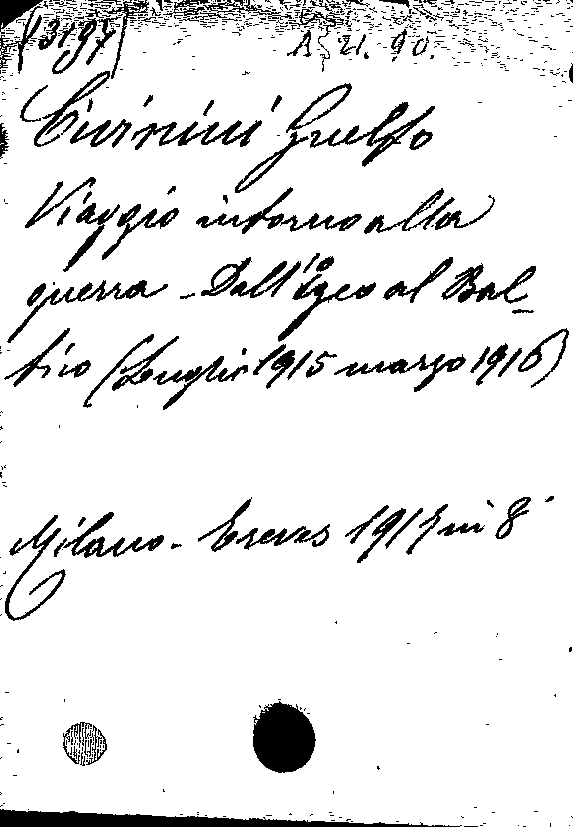 (3197) A 21. 90.
Civinini Guelfo
Viaggio intorno alla
guerra - Dall'Egeo al Bal-
tico (Luglio 1915 marzo 1916)
Milano - Treves 1917 in 8°